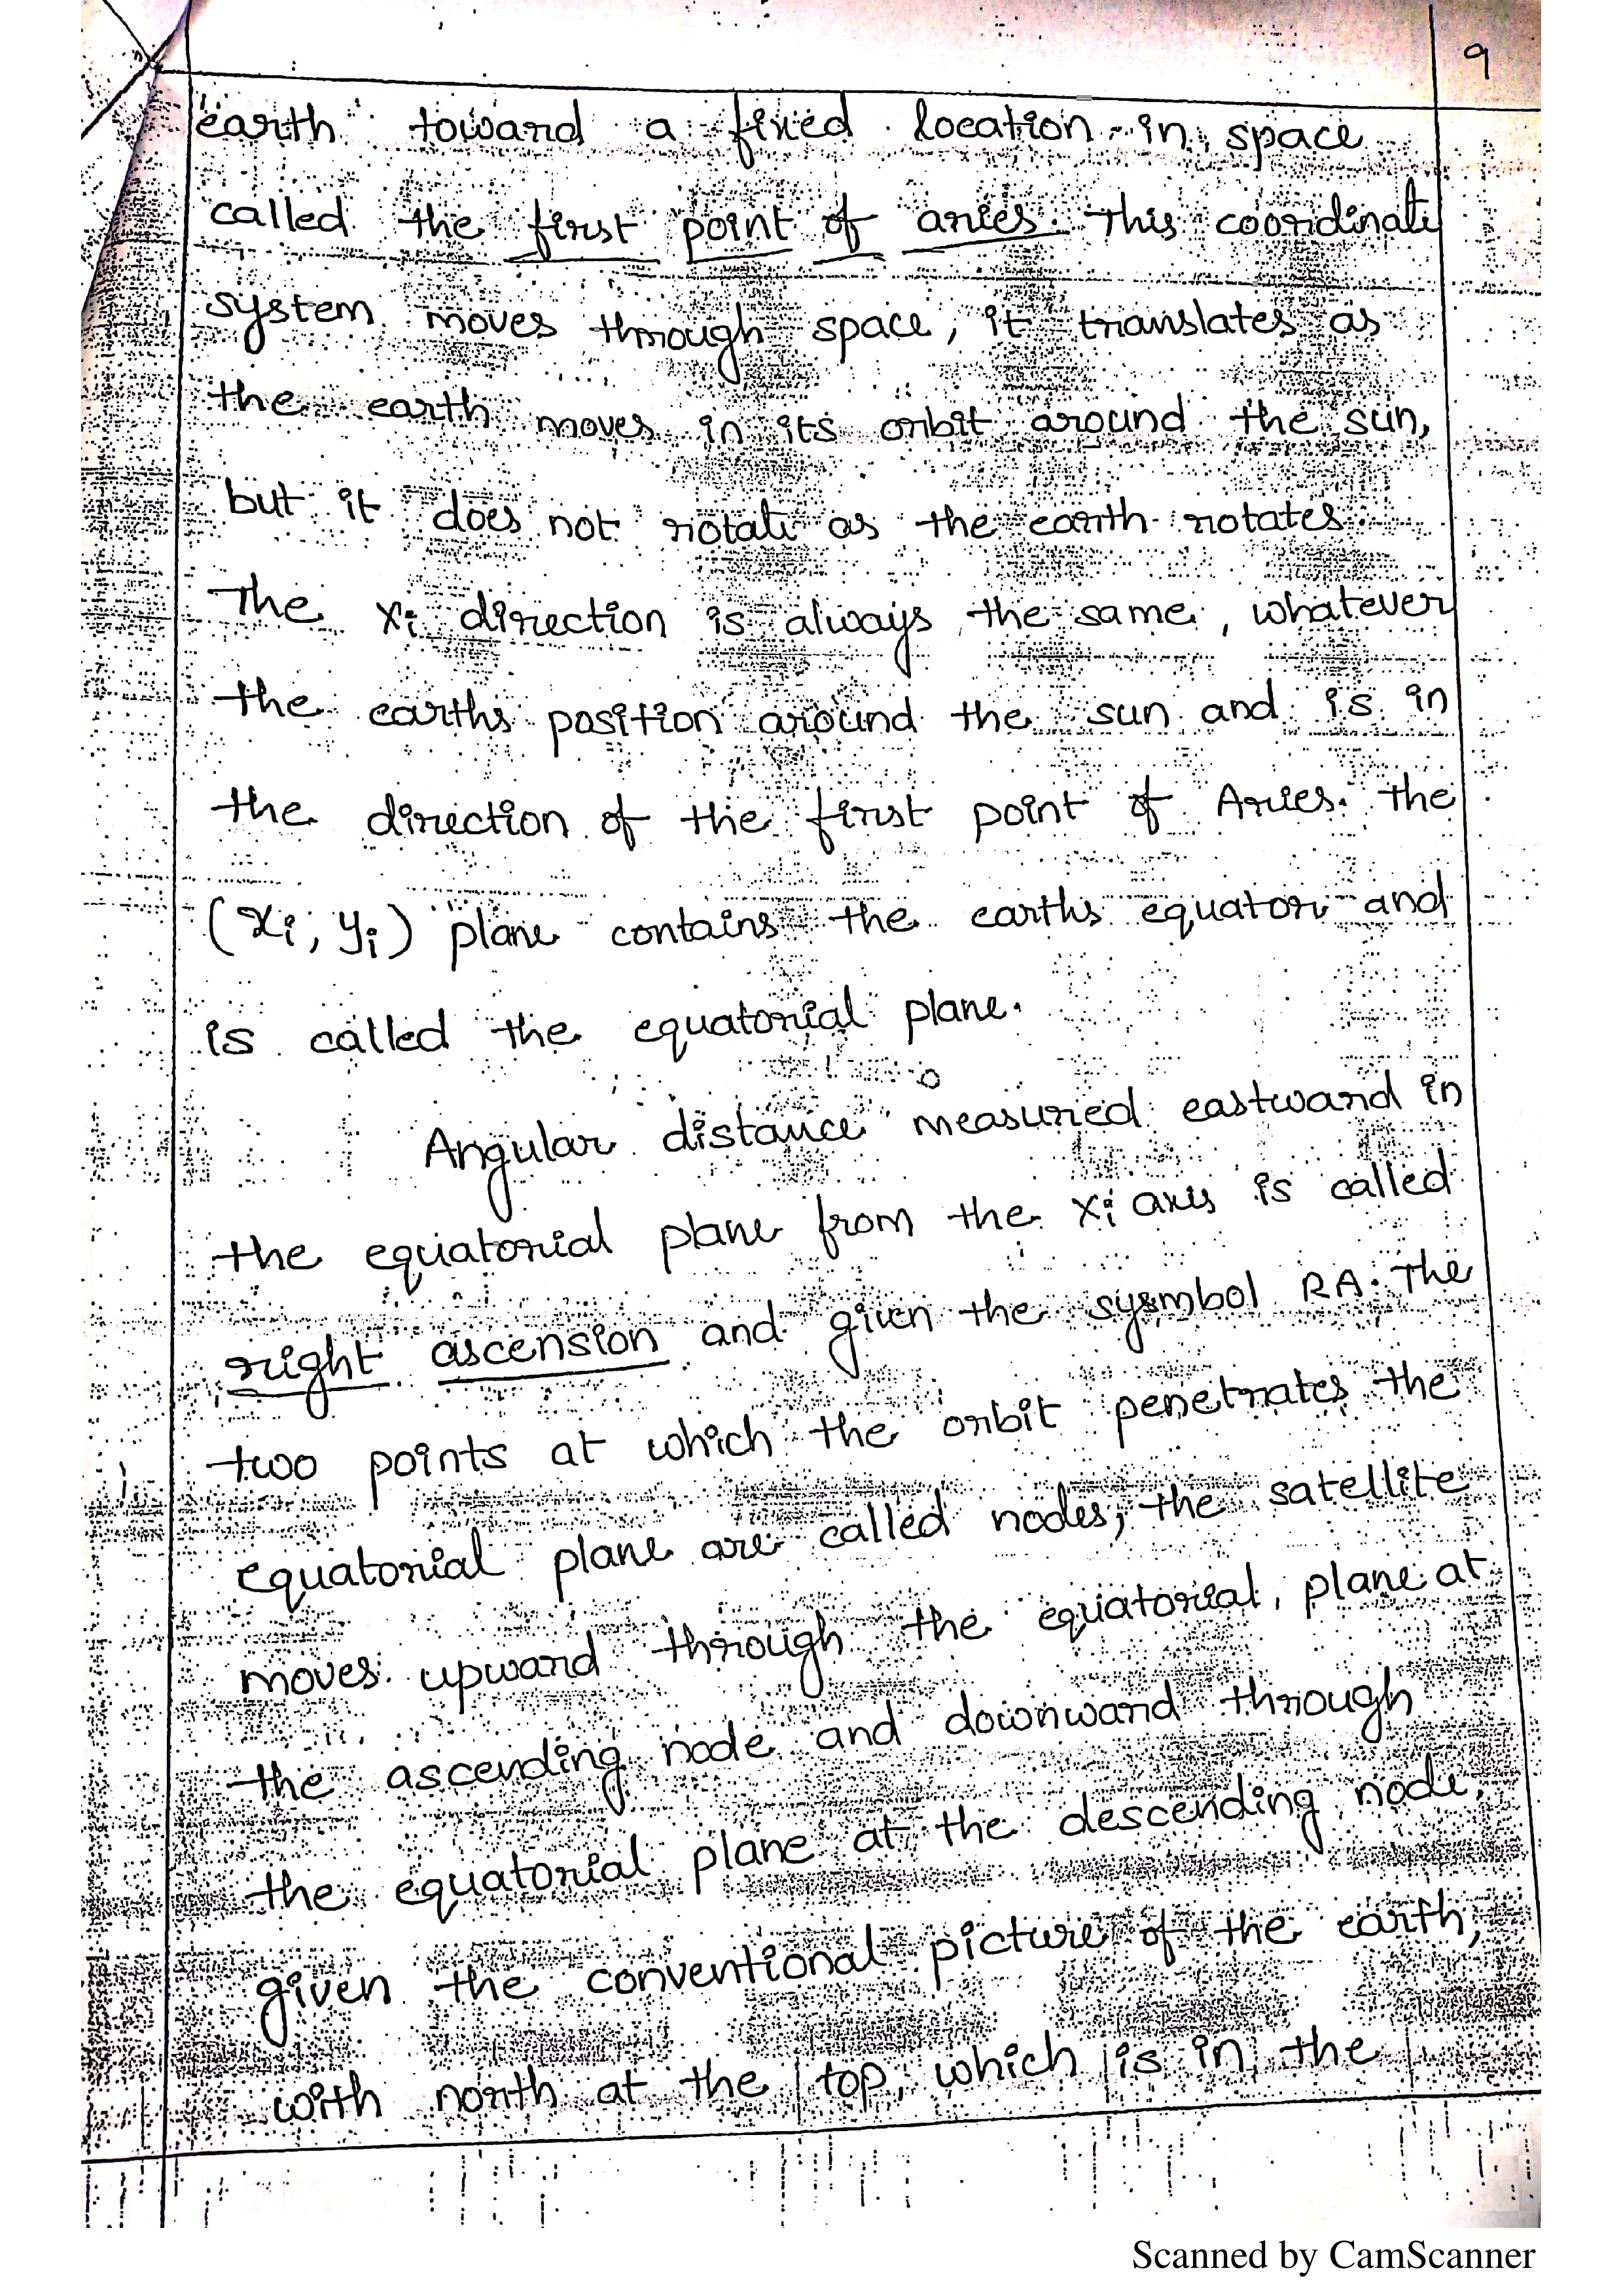 9
earth toward a fixed location in space
called the first point of aries. This coordinate
system moves through space, it translates as
the earth moves in its orbit around the sun,
but it does not rotate as the earth rotates.
The xi direction is always the same, whatever
the earths position around the sun and is in
the direction of the first point of Aries. The
(xi, yi) plane contains the earths equator and
is called the equatorial plane.
Angular distance measured eastward in
the equatorial plane from the xi axis is called
right ascension and given the sysmbol RA. The
two points at which the orbit penetrates the
equatorial plane are called nodes; the satellite
moves upward through the equatorial plane at
the ascending node and downward through
the equatorial plane at the descending node,
given the conventional picture of the earth,
with north at the top, which is in the
Scanned by CamScanner